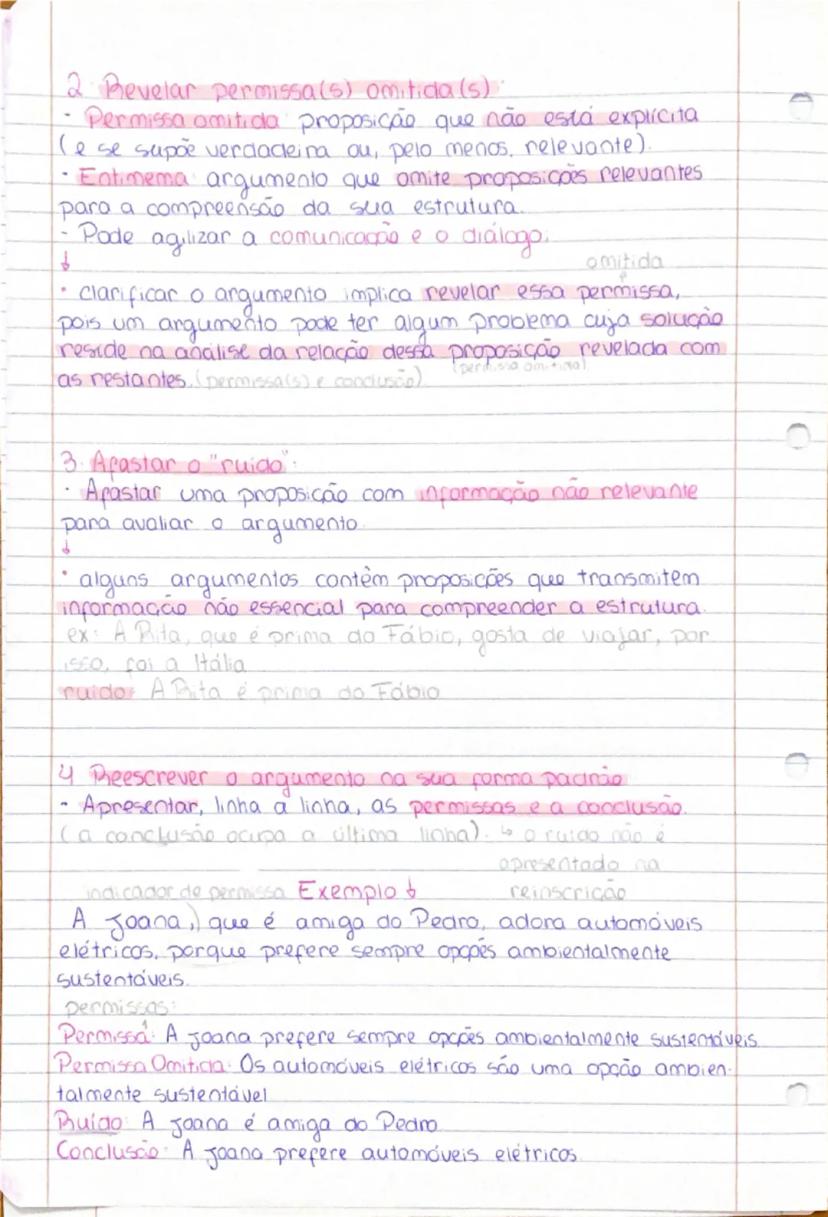 2. Revelar permissa(s) omitida(s):
· Permissa omitida: proposição que não está explícita
(e se supõe verdadeira ou, pelo menos, relevante).
· Entimema: argumento que omite proposições relevantes
para a compreensão da sua estrutura.
- Pode agilizar a comunicação e o diálogo.
↓
omitida
· clarificar o argumento implica revelar essa permissa,
pois um argumento pode ter algum problema cuja solução
reside na análise da relação dessa proposição revelada com
(permissa omitida)
as restantes. (permissa(s) e conclusão)
3. Afastar o "ruido":
· Afastar uma proposição com informação não relevante
para avaliar o argumento.
↓
· alguns argumentos contêm proposições que transmitem
informação não essencial para compreender a estrutura.
ex: A Rita, que é prima do Fábio, gosta de viajar, por
isso, foi a Itália
ruido: A Rita é prima do Fábio
4 Reescrever o argumento na sua forma padrão
- Apresentar, linha a linha, as permissas e a conclusão.
(a conclusão ocupa a última linha). ↳ o ruido não é
apresentado na
indicador de permissa Exemplo ↓ reinscrição
A Joana,) que é amiga do Pedro, adora automóveis
elétricos, porque prefere sempre opções ambientalmente
sustentáveis.
permissas:
Permissa: A Joana prefere sempre opções ambientalmente sustentáveis.
Permissa Omitida: Os automóveis elétricos são uma opção ambien-
talmente sustentável
Ruído: A Joana é amiga do Pedro
Conclusão: A Joana prefere automóveis elétricos.